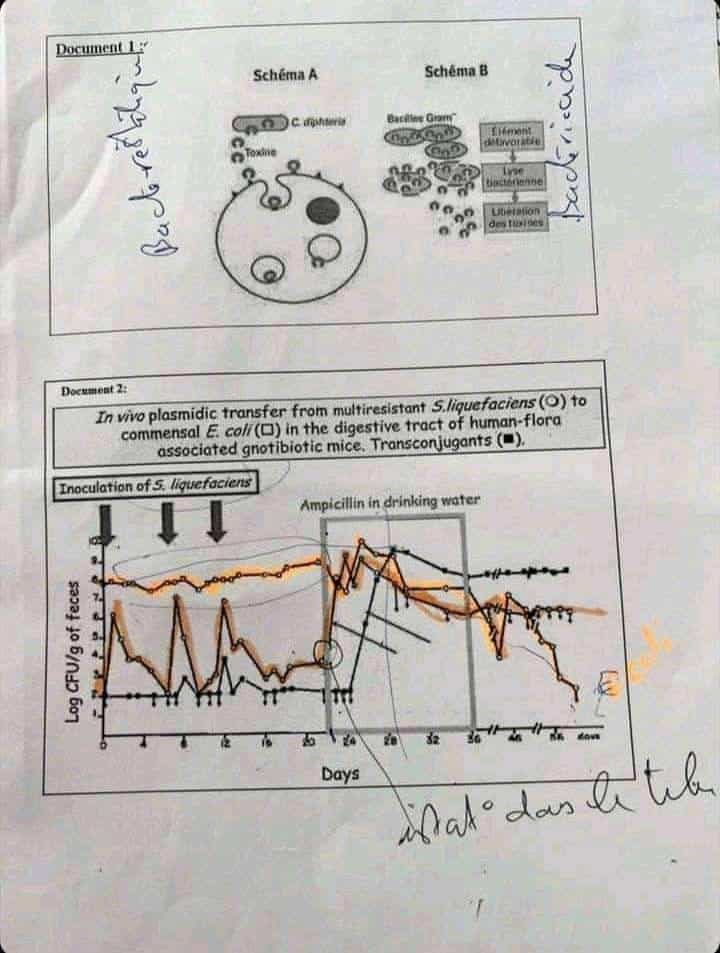 Document 1 :
Schéma A
Schéma B
Bactériostatique
bactéricide
C. diphteria
Toxine
Bacilles Gram-
Elément
défavorable
Lyse
bactérienne
Libération
des toxines
Document 2:
In vivo plasmidic transfer from multiresistant S.liquefaciens (O) to
commensal E. coli (□) in the digestive tract of human-flora
associated gnotibiotic mice. Transconjugants (■).
Inoculation of S. liquefaciens
Ampicillin in drinking water
Log CFU/g of feces
9
8
7
6
5
4
3
2
1
0 4 8 12 16 20 24 28 32 36 46 56 days
Days
E. coli
dans le